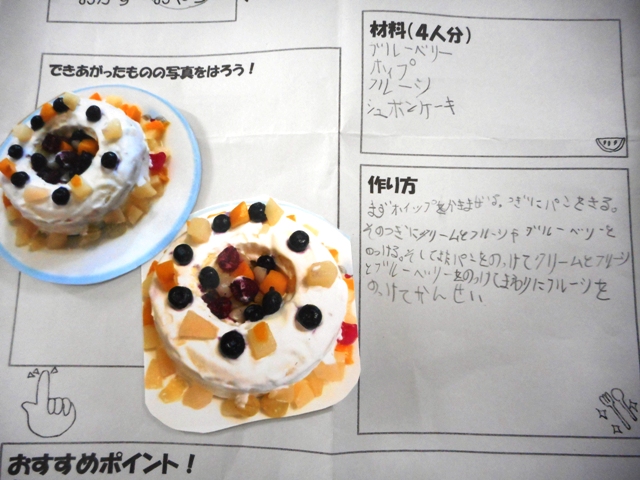 できあがったものの写真をはろう！
材料(4人分)
ブルーベリー
ホイップ
フルーツ
シュホンケーキ
作り方
まずホイップをかきまぜる。つぎにパンをきる。
そのつぎにクリームとフルーツやブルーベリーを
のっける。そしてパンをのっけてクリームとフルーツ
とブルーベリーをのっけてまわりにフルーツを
のっけてかんせい
おすすめポイント！